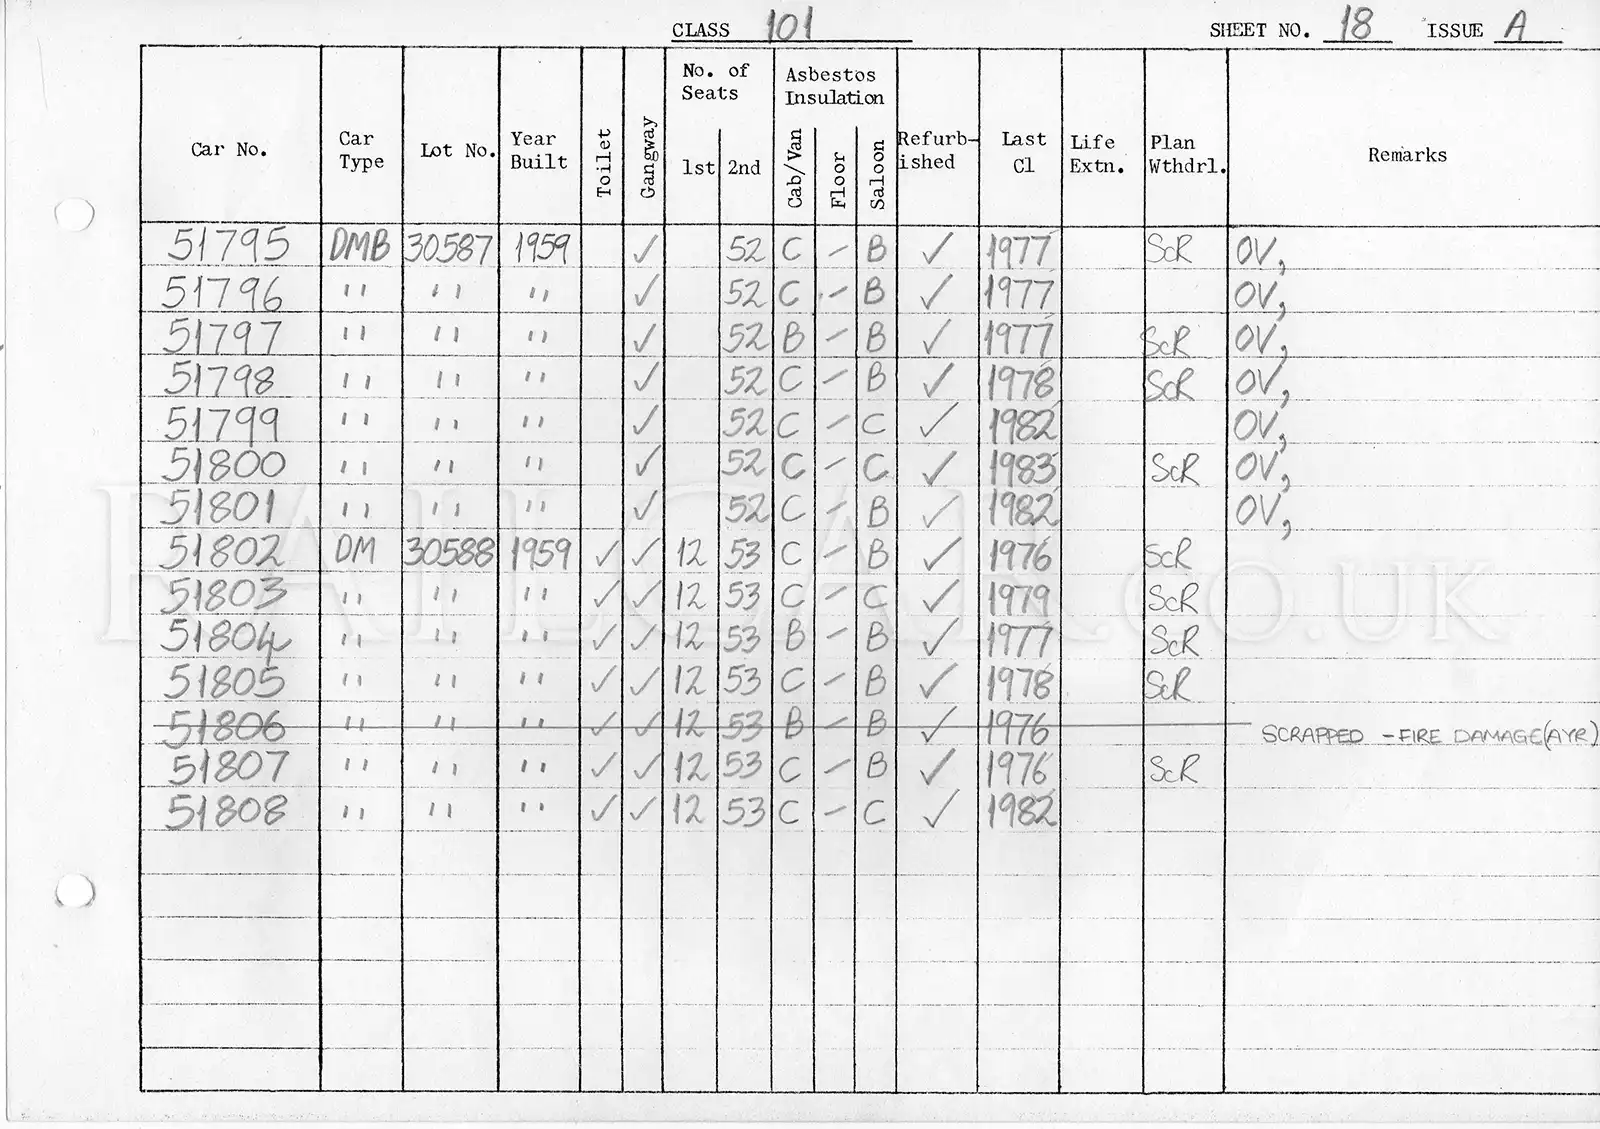 CLASS 101 SHEET NO. 18 ISSUE A
Car No. Car Type Lot No. Year Built Toilet Gangway No. of Seats 1st 2nd Asbestos Insulation Cab/Van Floor Saloon Refurb-ished Last Cl Life Extn. Plan Wthdrl. Remarks
51795 DMB 30587 1959 ✓ 52 C – B ✓ 1977 ScR OV,
51796 " " " ✓ 52 C – B ✓ 1977 OV,
51797 " " " ✓ 52 B – B ✓ 1977 ScR OV,
51798 " " " ✓ 52 C – B ✓ 1978 ScR OV,
51799 " " " ✓ 52 C – C ✓ 1982 OV,
51800 " " " ✓ 52 C – C ✓ 1983 ScR OV,
51801 " " " ✓ 52 C – B ✓ 1982 OV,
51802 DM 30588 1959 ✓ ✓ 12 53 C – B ✓ 1976 ScR
51803 " " " ✓ ✓ 12 53 C – C ✓ 1979 ScR
51804 " " " ✓ ✓ 12 53 B – B ✓ 1977 ScR
51805 " " " ✓ ✓ 12 53 C – B ✓ 1978 ScR
51806 " " " ✓ ✓ 12 53 B – B ✓ 1976 SCRAPPED – FIRE DAMAGE (AYR)
51807 " " " ✓ ✓ 12 53 C – B ✓ 1976 ScR
51808 " " " ✓ ✓ 12 53 C – C ✓ 1982
RAILCAR.CO.UK